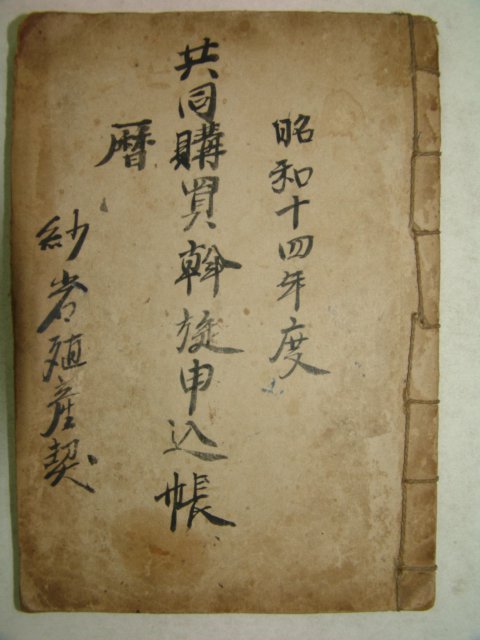 昭和十四年度
共同購買斡旋申込帳
暦
紗岩殖産契